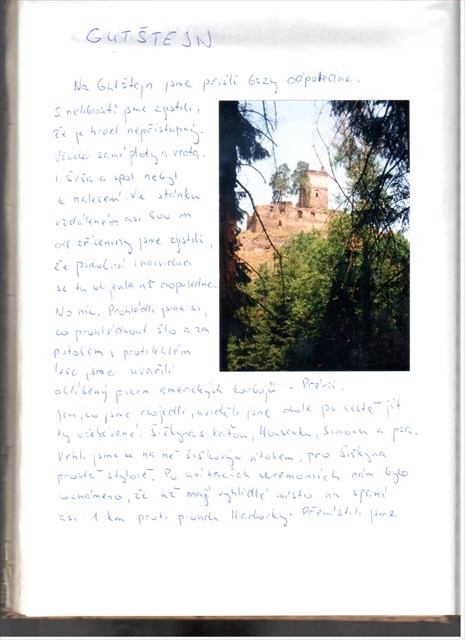 GUTŠTEJN
Na Gutštejn jsme přišli brzy odpoledne.
S nelibostí jsme zjistili,
že je hrad nepřístupný.
Všude samé ploty a vrata.
I Šiša a spol nebyl
k nalezení. Ve stánku
vzdáleném asi 500 m
od zříceniny jsme zjistili,
že podobní individua
se tu objevila už dopoledne.
No nic. Prohlédli jsme si,
co prohlédnout šlo a za
potokem v protilehlém
lese jsme uvařili
oblíbený pokrm amerických kovbojů -
Jen, co jsme dojedli, uviděli jsme dole po cestě jít
ty očekávané. Šiškyna s Kráťou, Simonu a psa.
Vehli jsme se na ně šiškovým útokem, pro Šiškyna
prostě stylově. Po uvítacích ceremoniích nám bylo
oznámeno, že už mají vyhlídlé místo na spaní
asi 1 km proti proudu Hadovky. Přemístili jsme